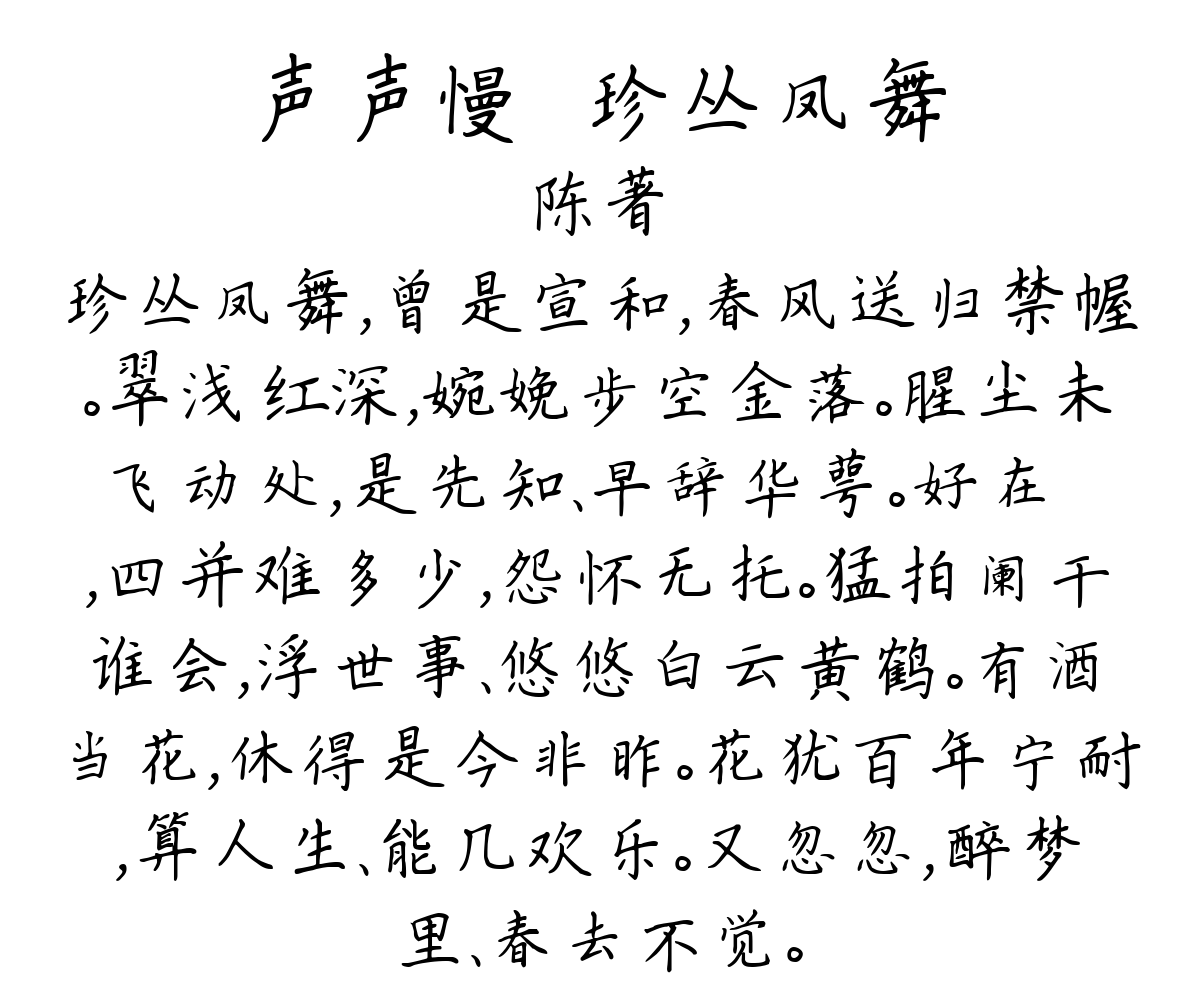 声声慢 珍丛凤舞
陈著
珍丛凤舞,曾是宣和,春风送归禁幄
。翠浅红深,婉娩步空金落。腥尘未
飞动处,是先知、早辞华萼。好在
,四并难多少,怨怀无托。猛拍阑干
谁会,浮世事、悠悠白云黄鹤。有酒
当花,休得是今非昨。花犹百年宁耐
,算人生、能几欢乐。又忽忽,醉梦
里、春去不觉。